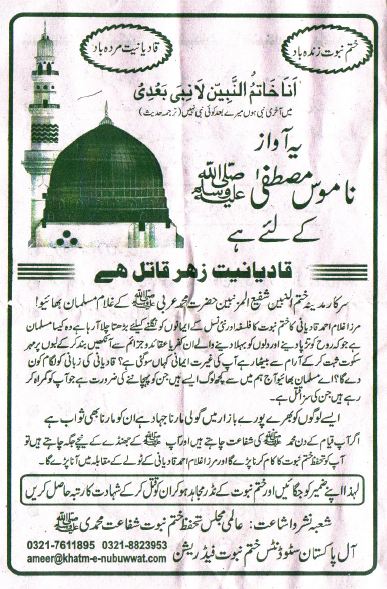 ختم نبوت زندہ باد
قادیانیت مردہ باد
اَنَا خَاتَمُ النَّبِیّٖنَ لَا نَبِیَّ بَعْدِیْ
میں آخری نبی ہوں میرے بعد کوئی نبی نہیں (ترجمہ حدیث)
یہ آواز
ناموس مصطفیٰ ﷺ
کے لئے ہے
قادیانیت زہر قاتل ھے
سرکار مدینہ ختم النبین شفیع المزنبین حضرت محمد عربی ﷺ کے غلام مسلمان بھائیو!
مرزا غلام احمد قادیانی کا ختم نبوت کا فلسفہ اور نئی نسل کے ایمانوں کو نگلنے کیلئے بڑھتا چلا آ رہا ہے وہ کیسا مسلمان
ہے جو روح کو تڑپا دینے اور دلوں کو دہلا دینے والے ان کفریہ عقائد و عزائم سے آنکھیں بند کر کے لبوں پر مہر
سکوت ثبت کر کے آرام سے بیٹھا رہے آپ کی غیرت ایمانی کہاں سو گئی ہے؟ قادیانی کی زبانی کو لگام کون
دے گا؟ اے مسلمان بھائیو آج ہم میں سے کچھ لوگ ایسے ہیں جن کو پہچاننے کی ضرورت ہے جو آپ کو گمراہ کر
رہے ہیں جن کی سزا قتل ہے۔
ایسے لوگوں کو بھرے پورے بازار میں گولی مارنا جہاد ہے ان کو مارنا بھی ثواب ہے
اگر آپ قیام کے دن محمد ﷺ کی شفاعت چاہتے ہیں اور آپ ﷺ کے جھنڈے کے نیچے جگہ چاہتے ہیں تو
آپ کو تحفظ ختم نبوت کا کام کرنا پڑے گا اور مرزا غلام احمد قادیانی کے ٹولے کے مقابلہ میں آنا پڑے گا۔
لہذا اپنے ضمیر کو جگائیں اور ختم نبوت کے نڈر مجاہد ہو کر ان کو قتل کر کے شہادت کا رتبہ حاصل کریں
شعبہ نشر و اشاعت: عالمی مجلس تحفظ ختم نبوت شفاعت محمدی ﷺ
آل پاکستان سٹوڈنٹس ختم نبوت فیڈریشن
0321-7611895 0321-8823953
ameer@khatm-e-nubuwwat.com